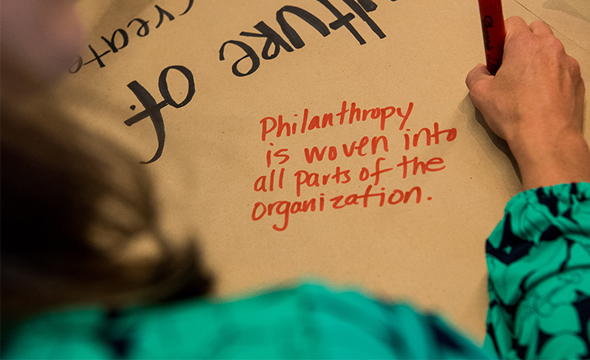 create
ulture of
Philanthropy
is woven into
all parts of the
organization.